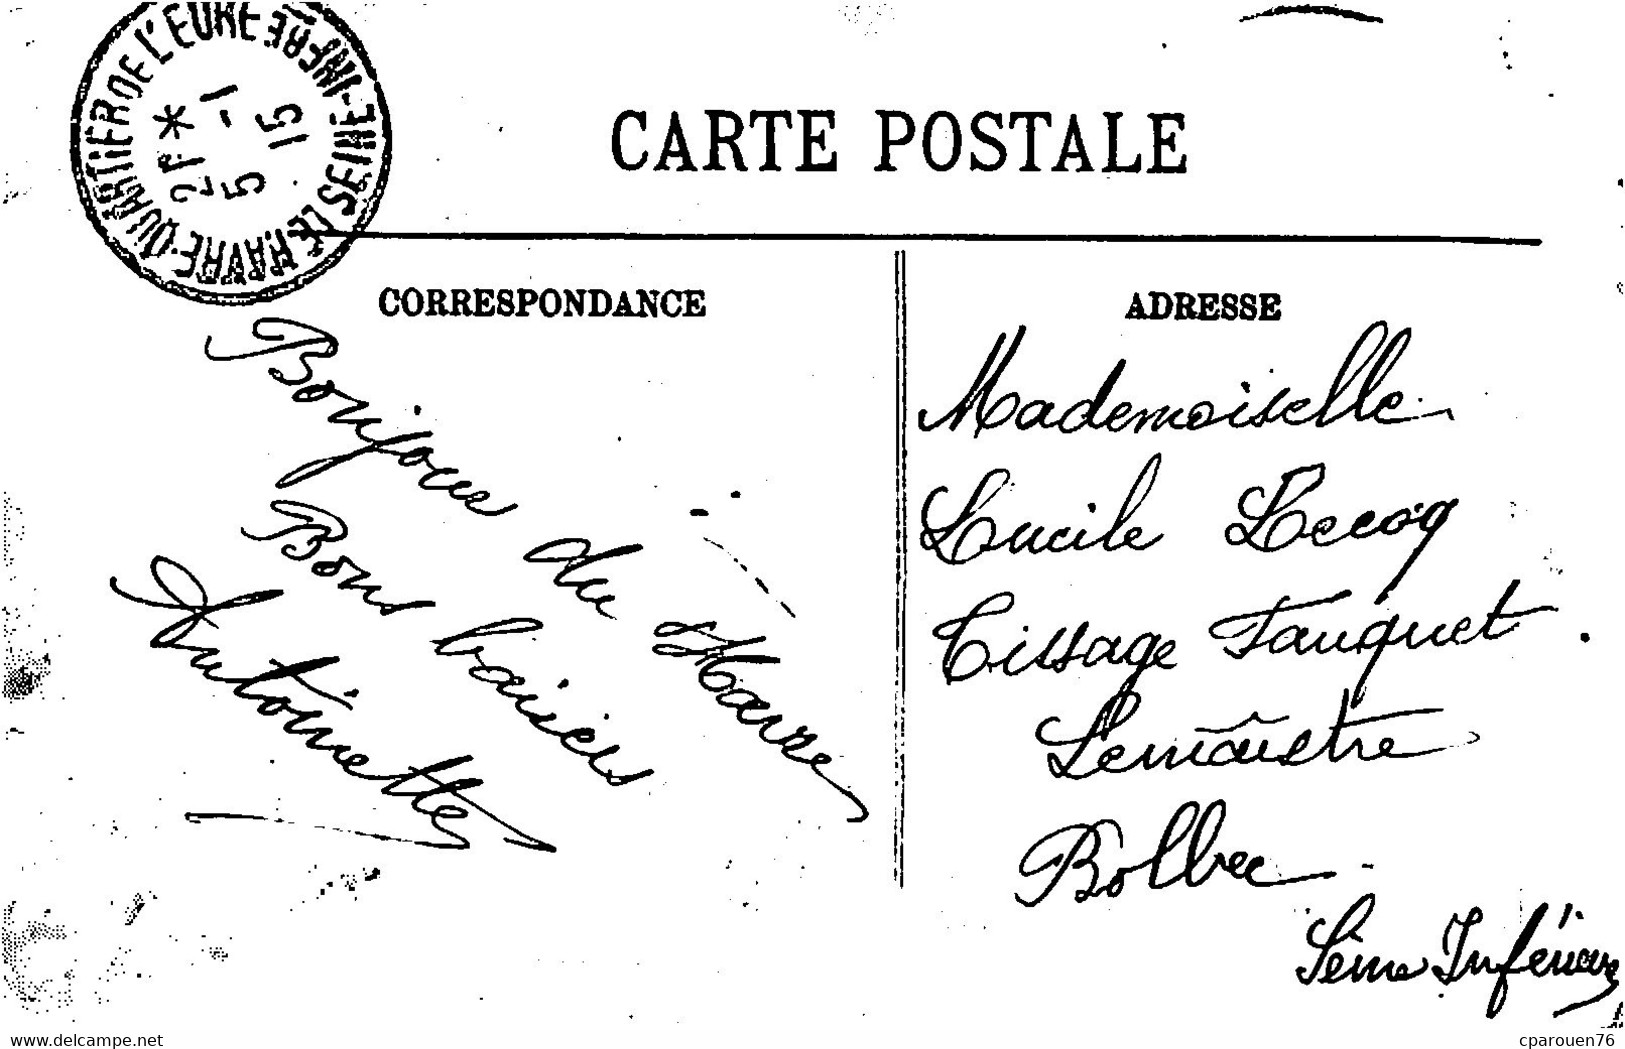 LE HAVRE-QUARTIER DE L'EURE SEINE-INFÉRE
2F *
5 -1
15
CARTE POSTALE
CORRESPONDANCE
Bonjour du Havre
Bons baisers
Antoinette
ADRESSE
Mademoiselle
Lucile Lecoq
Tissage Fauquet
Lemaistre
Bolbec
Seine Inférieure
www.delcampe.net
cparouen76